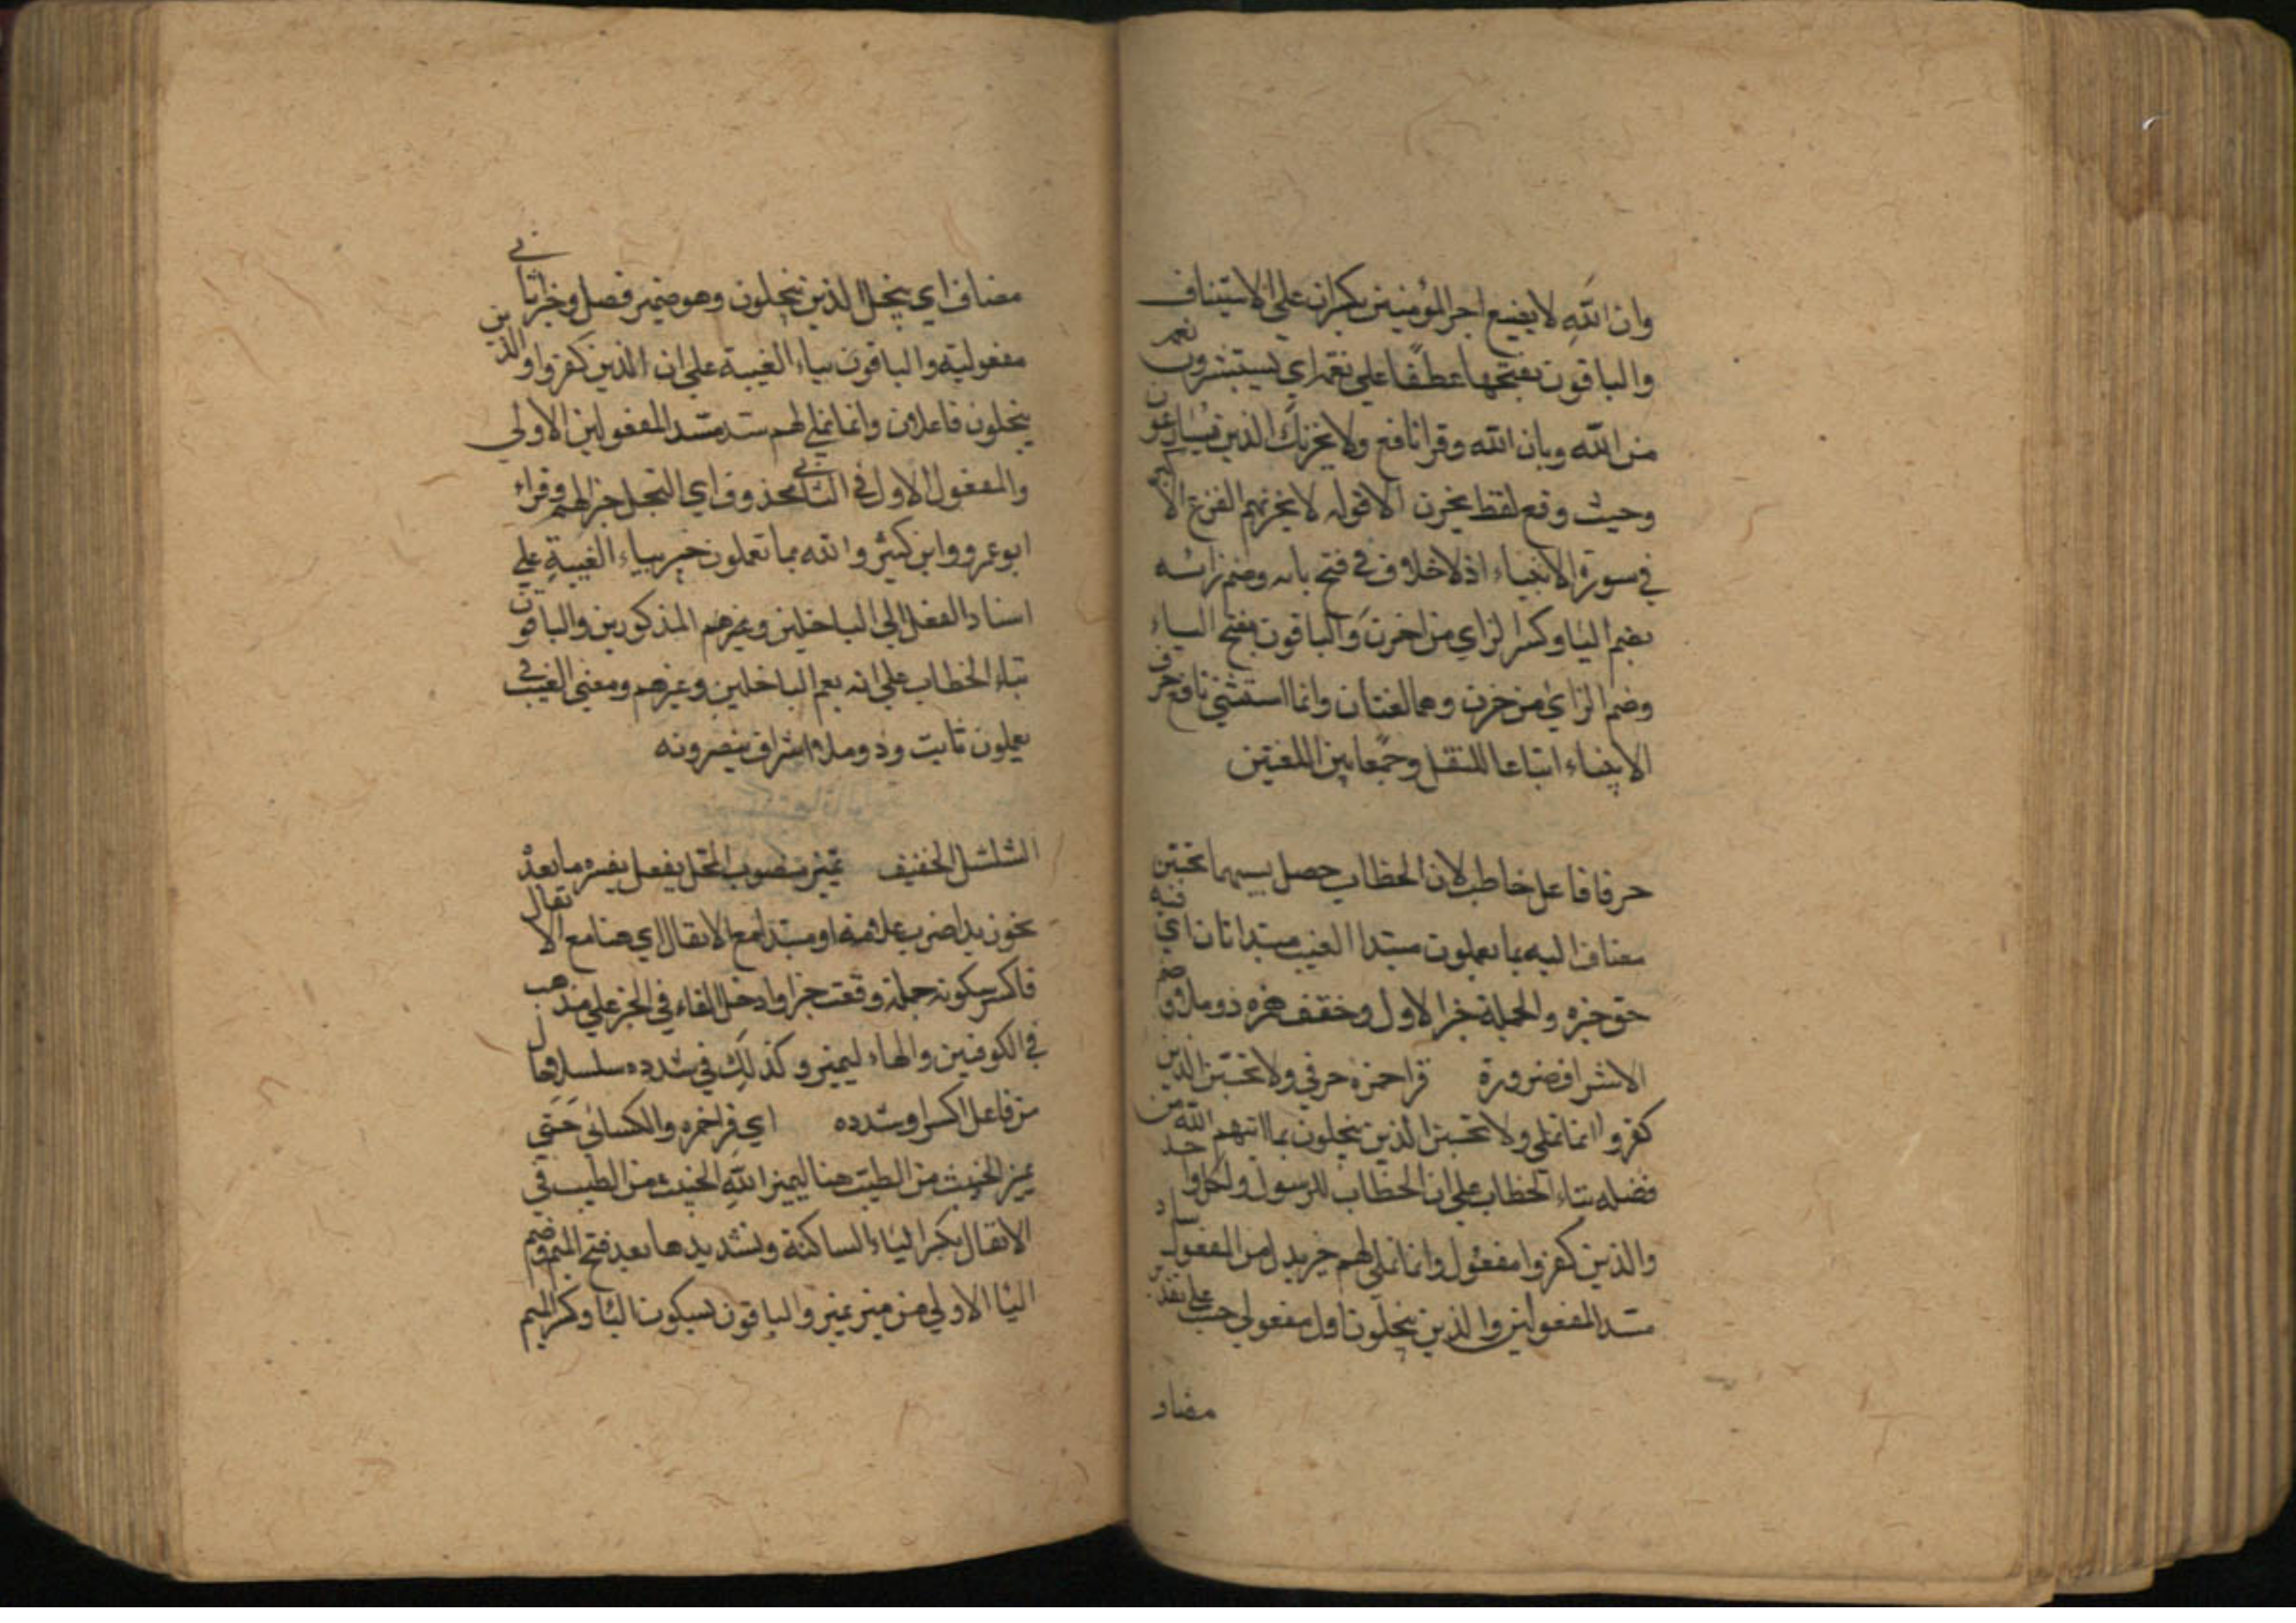 وان الله لا يضيع اجر المؤمنين بكران علي الاستيناف
والباقون بفتحها عطفا علي نعمراي يستبشرون نعم
من الله وبان الله وقرا نافع ولا يحزنك الذين يسارعون
وحيث وقع لفظ يحزن الا قوله لا يحزنهم الفزع الاكبر
في سورة الانبياء اذ لا خلاف في فتح يائه وضم زائه
بضم اليا وكسر الزاي من احزن والباقون بفتح الياء
وضم الزاي من حزن وهما لغتان وانما استثني نافع حرف
الانبياء اتباعا للنقل وجمعا بين اللغتين
حرفا فاعل خاطب لان الخطاب حصل بسبهما تحسبن
مضاف اليه بما يعملون مبتدا الغيب مبتدا ثان اي فيه
حق خبره والجملة خبر الاول وخفف همزه ذو ملا وضم
الاشراف ضرورة قرا حمزه حرفي ولا تحسبن الذين
كفروا انما نملي ولا تحسبن الذين يبخلون بما اتيهم الله من
فضله بتاء الخطاب علي ان الخطاب للرسول ولكل واحد
والذين كفروا مفعول وانما نملي لهم خير بدل من المفعول ساد
مسد المفعولين والذين يبخلون اول مفعولي حسب علي تقدير
مضاد
مضاف اي بخل الذين يبخلون وهو ضمير فصل وخيرا ثاني
مفعوليه والباقون بياء الغيبة علي ان الذين كفروا والذين
يبخلون فاعلان وانما نملي لهم سد مسد المفعولين الاولي
والمفعول الاول في الثاني محذوف اي البخل خيرا لهم وقراء
ابو عمرو وابن كثير والله بما تعملون خبير بياء الغيبة علي
اسناد الفعل الي الباخلين وغيرهم المذكورين والباقون
بتاء الخطاب علي انه يعم الباخلين وغيرهم ومعني الغيب في
يعملون ثابت وذو ملا اشراف ينصرونه
الشلشل الخفيف تميز منصوب المحل بفعل يفسره ما بعده
نحو زيدا ضرب غلامه او مبتدا مع الانفال اي هنا مع الانفال
فاكسر سكونه جملة وقعت خبرا وادخل الفاء في الخبر علي مذهب
في الكوفيين والهاء ليميز وكذلك في شدده سلسلا حال
من فاعل اكسر او شدده اي قرا حمزه والكسائي حتي
يميز الخبيث من الطيب هنا ليميز الله الخبيث من الطيب في
الانفال بكسر الياء الساكنة وتشديدها بعد فتح الميم وضم
اليا الاولي من ميز يميز والباقون بسكون اليا وكسر الميم